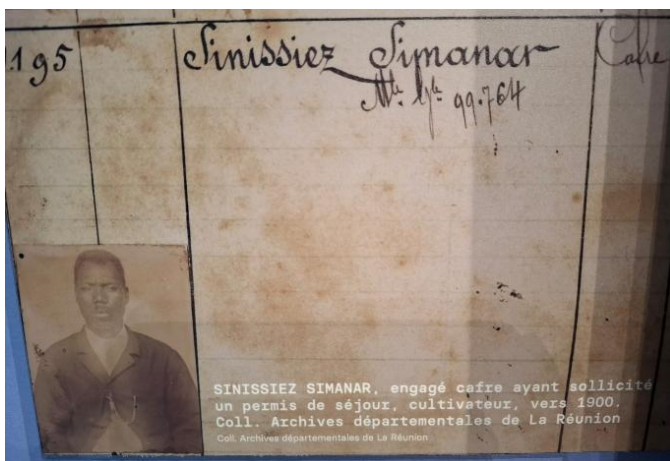 195
Sinissiez Simanar
Cafre
Mle Gle 99.764
SINISSIEZ SIMANAR, engagé cafre ayant sollicité
un permis de séjour, cultivateur, vers 1900.
Coll. Archives départementales de La Réunion
Coll. Archives départementales de La Réunion